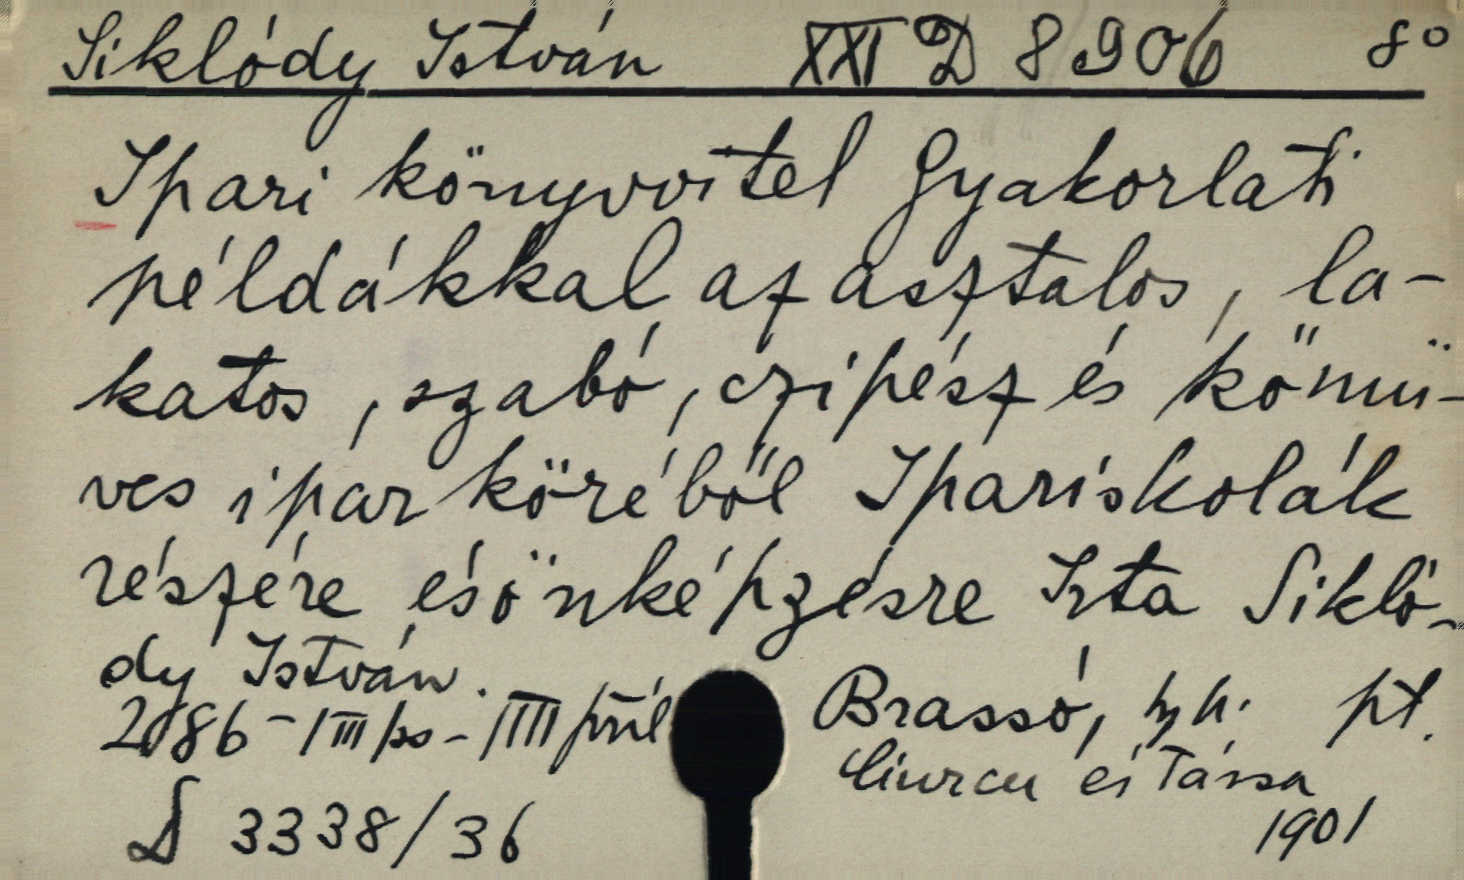 Siklódy István XXI D 8906 8°
Ipari könyvvitel Gyakorlati
példákkal az asztalos, la-
katos, szabó, czipész és kőmü-
ves ipar köréből Ipariskolák
részére és önképzésre Irta Sikló-
dy István.
2, 86 - I III
Brassó, h. n. pt.
Ciurcu és Társa
D 3338/36
1901